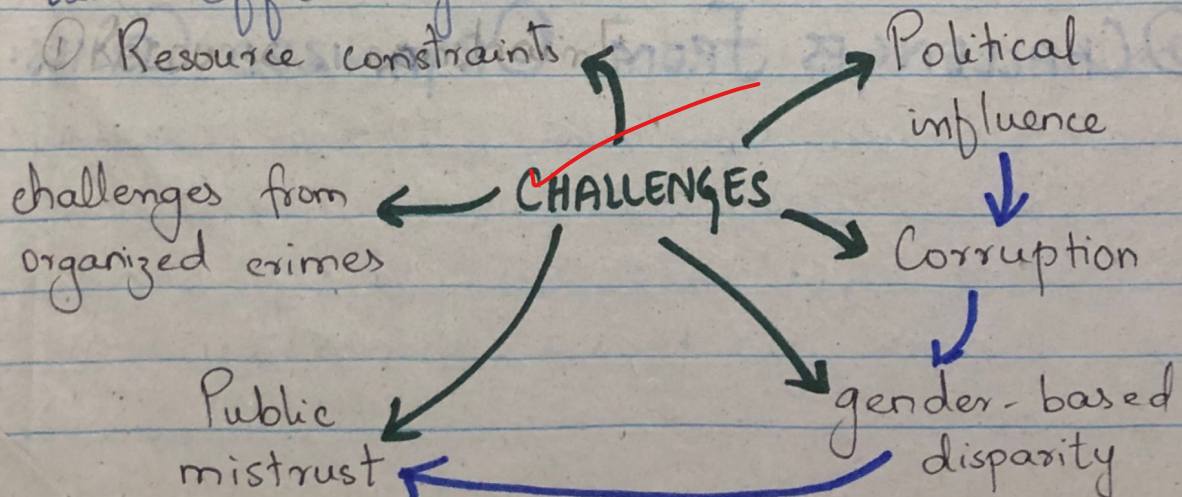 ① Resource constraints
Political
influence
challenges from
organized crimes
CHALLENGES
Corruption
Public
mistrust
gender-based
disparity